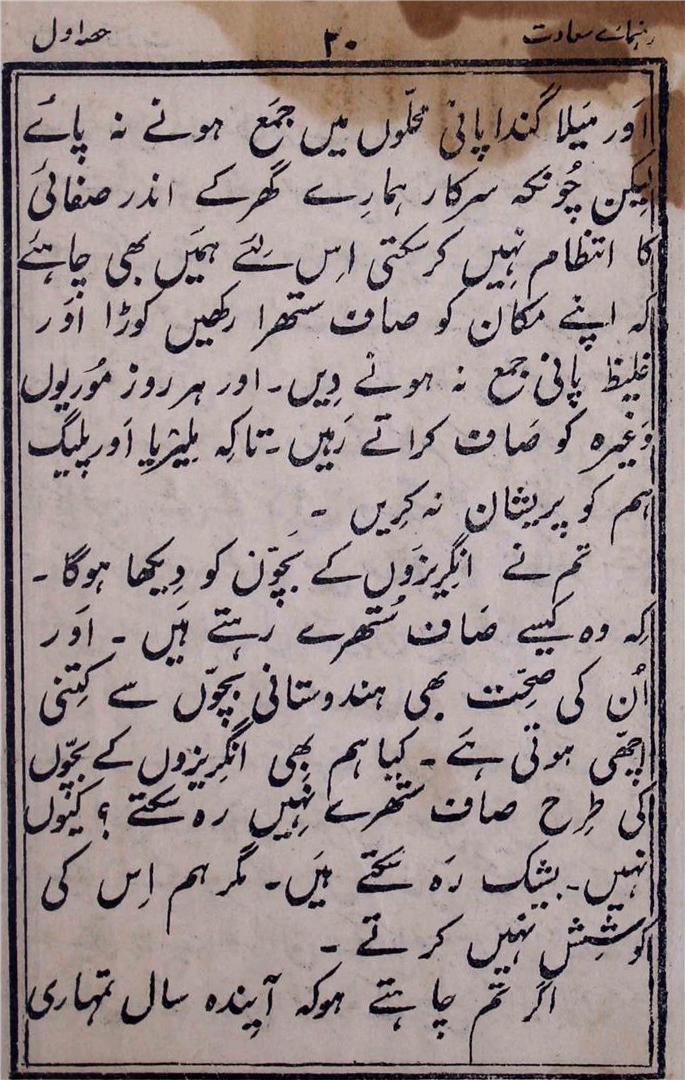 رہنمائے سعادت ۲۰ حصہ اول
اَور میَلا گندا پانی محلّوں میں جمَع ہونے نہ پائے
لیکن چُونکہ سرکار ہمارے گھر کے اندر صفائی
کا انتظام نہِیں کرسکتی اِس لئے ہمَیں بھی چاہئے
کہ اپنے مکان کو صاف ستھرا رکھیں کوڑا اَور
غلیظ پانی جمع نہ ہونے دِیں۔ اور ہر روز مُوریوں
وَغیرہ کو صَاف کراتے رَہیں۔ تاکِہ ملیریا اَور پلیگ
ہم کو پریشان نہ کرِیں ۔
تم نے انگریزوَں کے بچوّں کو دِیکھا ہوگا ۔
کِہ وہ کیَسے صَاف سُتھرے رہتے ہَیں ۔ اَور
اُن کی صحِّت بھی ہندوستانی بچوّں سے کِتنی
اچھّی ہوتی ہَے ۔ کیا ہم بھِی انگرِیزوں کے بچوّں
کی طرِح صاف ستھرے نہِیں رہ سکتے ؟ کیُوں
نہیں۔ بیشک رَہ سکتے ہیَں۔ مگر ہم اِس کی
کوشِش نہیں کرتے ۔
اگر تُم چاہتے ہوکہ آیٔندہ سال تمہاری